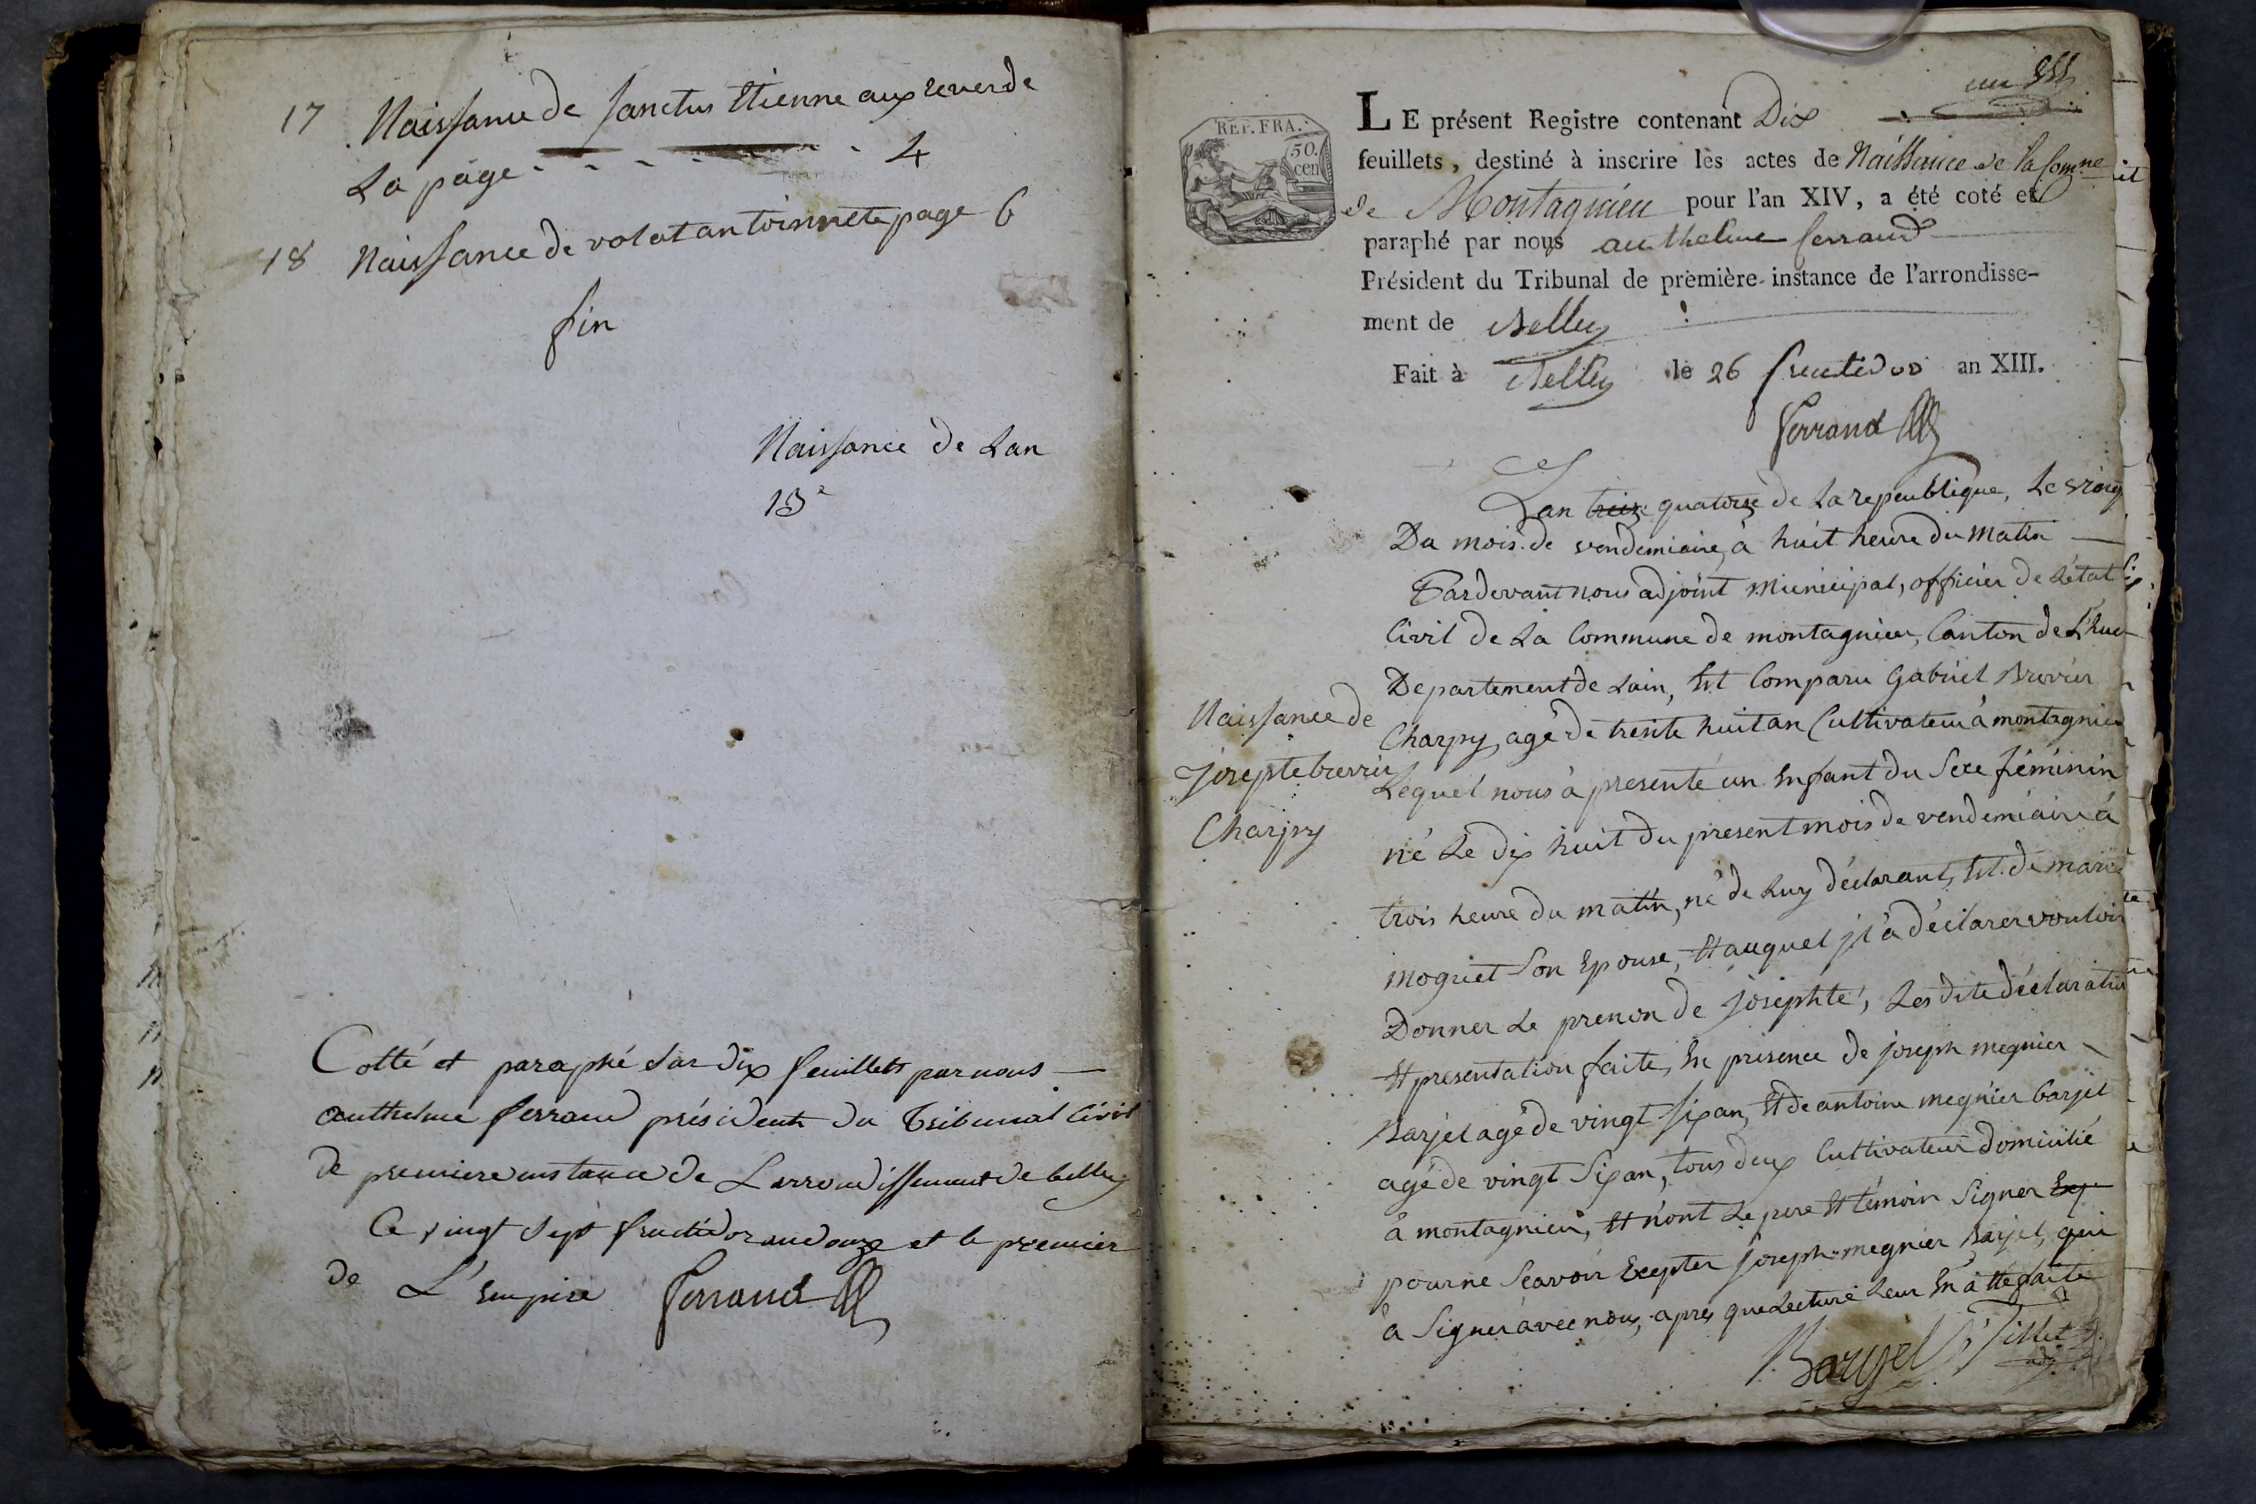 17 Naissance de Sanctus Etienne aux reverde
La page - - - - 4
18 Naissance de volat antoinnete page 6
fin
Naissance de Lan
13e
Cotté et paraphé Sur dix feuillets par nous
anthelme ferrand président du Tribunal Civil
de premiere instance de Larrondissement de belley
Ce vingt Sept fructidor an douze et le premier
de L'Empire Ferrand
un
REP. FRA.
50.
cen
LE présent Registre contenant Dix
feuillets, destiné à inscrire les actes de Naissance de la Com.ne
de Montagnieu pour l'an XIV, a été coté et
paraphé par nous anthelme ferrand
Président du Tribunal de première instance de l'arrondisse-
ment de Belley
Fait à Belley le 26 fructidor an XIII.
Ferrand
Lan treize quatorze de La repeublique, Le vring
Du mois de vendemiaire, à huit heure du matin
Pardevant nous adjoint municipal, officier de Létat
Civil de La Commune de montagnieu, Canton de L'huis
Departement de Lain, Est Comparu Gabriel Brevier
Charpy, agé de trente huit an Cultivateur à montagnieu
Naissance de
josepte brevier
Charpy
Lequel nous à presenté un Enfant du Sexe féminin
né Le dix huit du present mois de vendemiaire à
trois heure du matin, né de Luy déclarant, Et de marie
mogniet Son Epouse, Et auquel jl à déclarer vouloir
Donner Le prenon de josephte, Les dite déclaration
Et presentation faite, En presence de joseph megnier
Barjel agé de vingt Six an, Et de antoine megnier barjel
agé de vingt Six an, tous deux Cultivateur domicilié
à montagnieu, Et n'ont Le pere Et témoin Signer Exp
pour ne Scavoir Excepter joseph megnier Barjel, qui
à Signer avec nous, apres que Lecture Leur En à Eté faite
Barjel Tillet
adj.